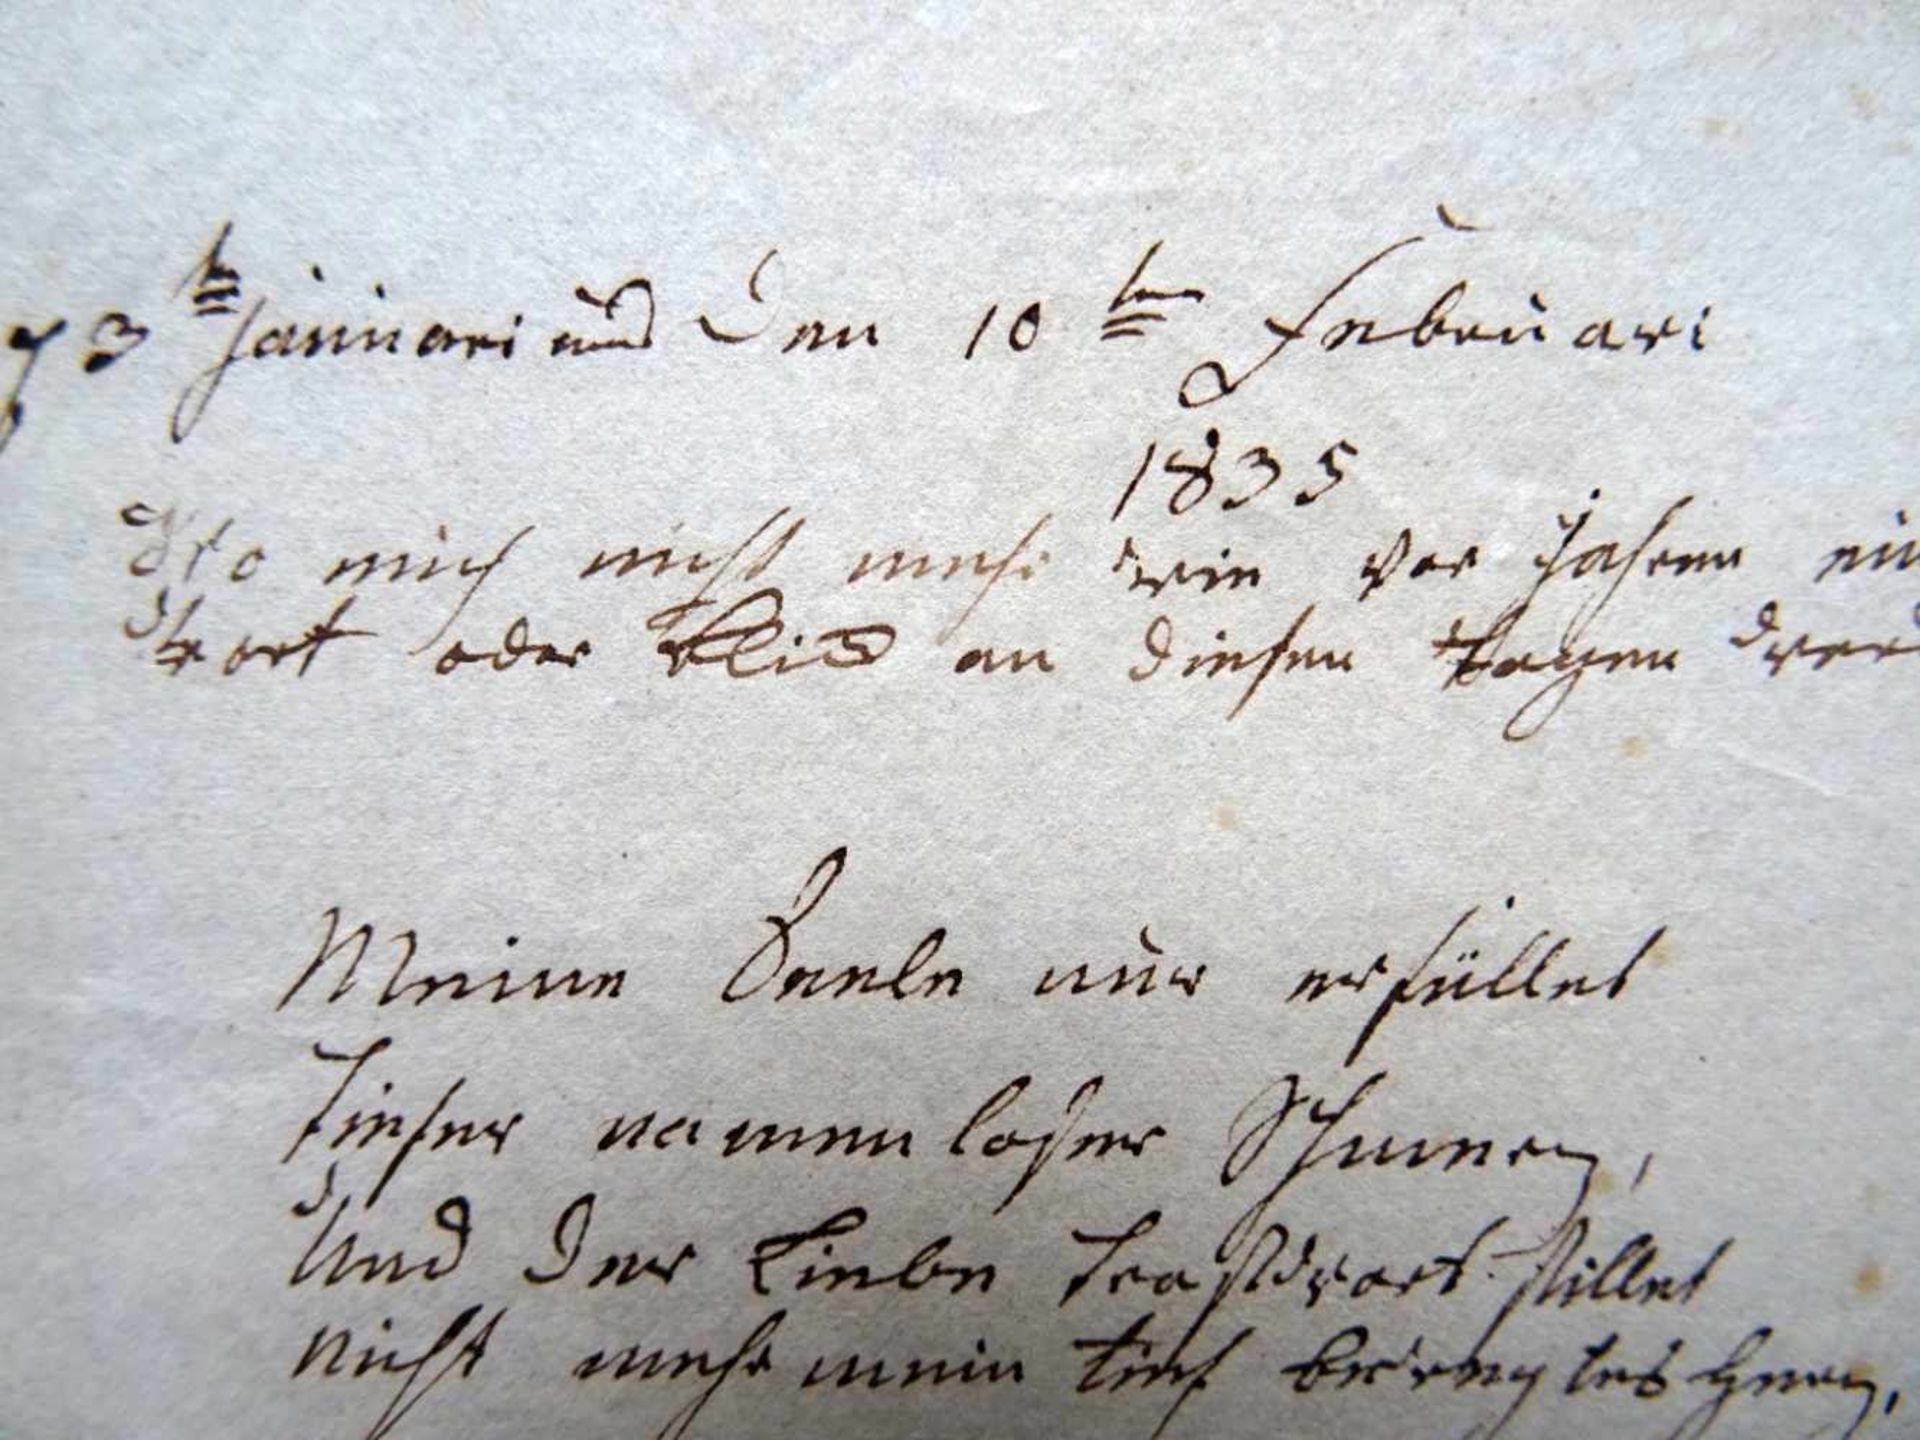 3<sup>t</sup> Januari und Den 10<sup>ten</sup> Februari
1835
Wo mich nicht mehr wie vor Jahren ein
wort oder an diesen Tagen
Meine Seele nur erfüllet
Tiefer namen loßer Schmerz,
Und Der Liebe Trostwort stillet
Nicht mehr mein tief Herz,